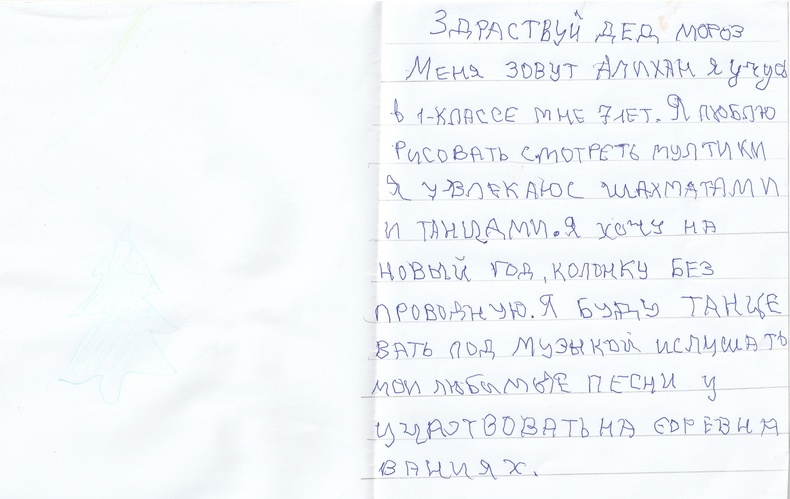 ЗДРАСТВУЙ ДЕД МОРОЗ
МЕНЯ ЗОВУТ АЛИХАН Я УЧУС
В 1-КЛАССЕ МНЕ 7 ЛЕТ. Я ЛЮБЛЮ
РИСОВАТЬ СМОТРЕТЬ МУЛТИКИ
Я УВЛЕКАЮС ШАХМАТАМИ
И ТАНЦАМИ. Я ХОЧУ НА
НОВЫЙ ГОД, КОЛОНКУ БЕЗ
ПРОВОДНУЮ. Я БУДУ ТАНЦЕ
ВАТЬ ПОД МУЗЫКОЙ И СЛУШАТЬ
МОИ ЛЮБЫМЫЕ ПЕСНИ У
УЧАСТВОВАТЬ НА СОРЕВНА
ВАНИЯХ.